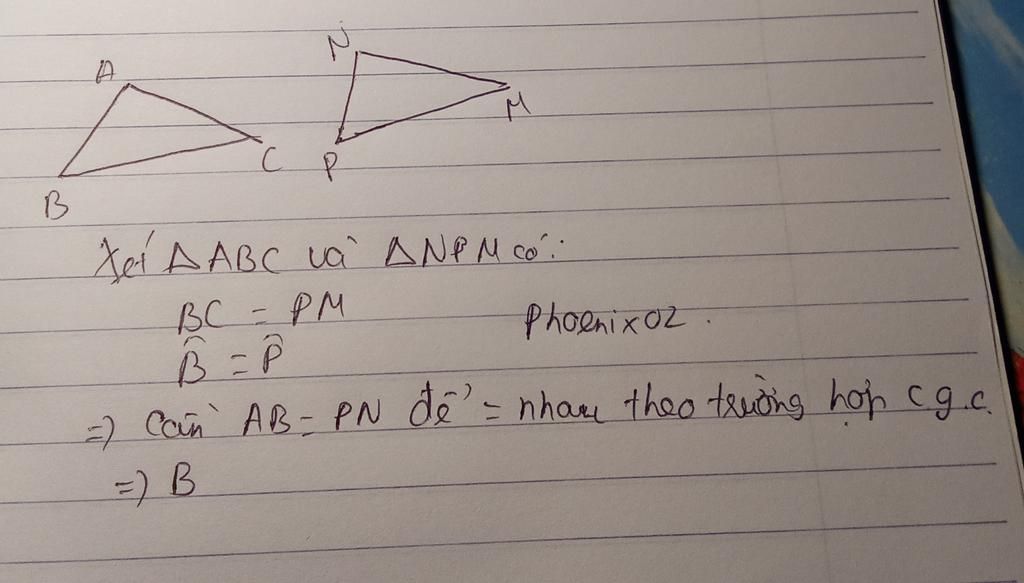 A
N
M
C
P
B
Xét ΔABC và ΔNPM có:
BC = PM
Phoenix02.
B̂ = P̂
=) Cần AB = PN để = nhau theo trường hợp c g.c.
=) B